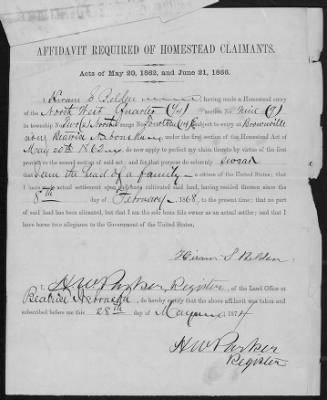 AFFIDAVIT REQUIRED OF HOMESTEAD CLAIMANTS.
Acts of May 20, 1862, and June 21, 1866.
I, Hiram S. Belden having made a Homestead entry
of the North West Quarter (¼) section No. Nine (9)
in township No. North range No. Fourteen (14) subject to entry at Brownville
now Beatrice Nebraska under the first section of the Homestead Act of
May 20th 1862 do now apply to perfect my claim thereto by virtue of the first
proviso to the second section of said act; and for that purpose do solemnly swear
that I am the head of a family a citizen of the United States; that I
have made actual settlement upon and have cultivated said land, having resided thereon since the
8th day of February 1868, to the present time; that no
part of said land has been alienated, but that I am the sole bona fide owner as an actual settler; and that I
have borne true allegiance to the Government of the United States,
Hiram S Belden
I, H W Parker, Register, of the Land Office at
Beatrice Nebraska, do hereby certify that the above affidavit was taken and
subscribed before me this 28th day of May 1874
H W Parker
Register